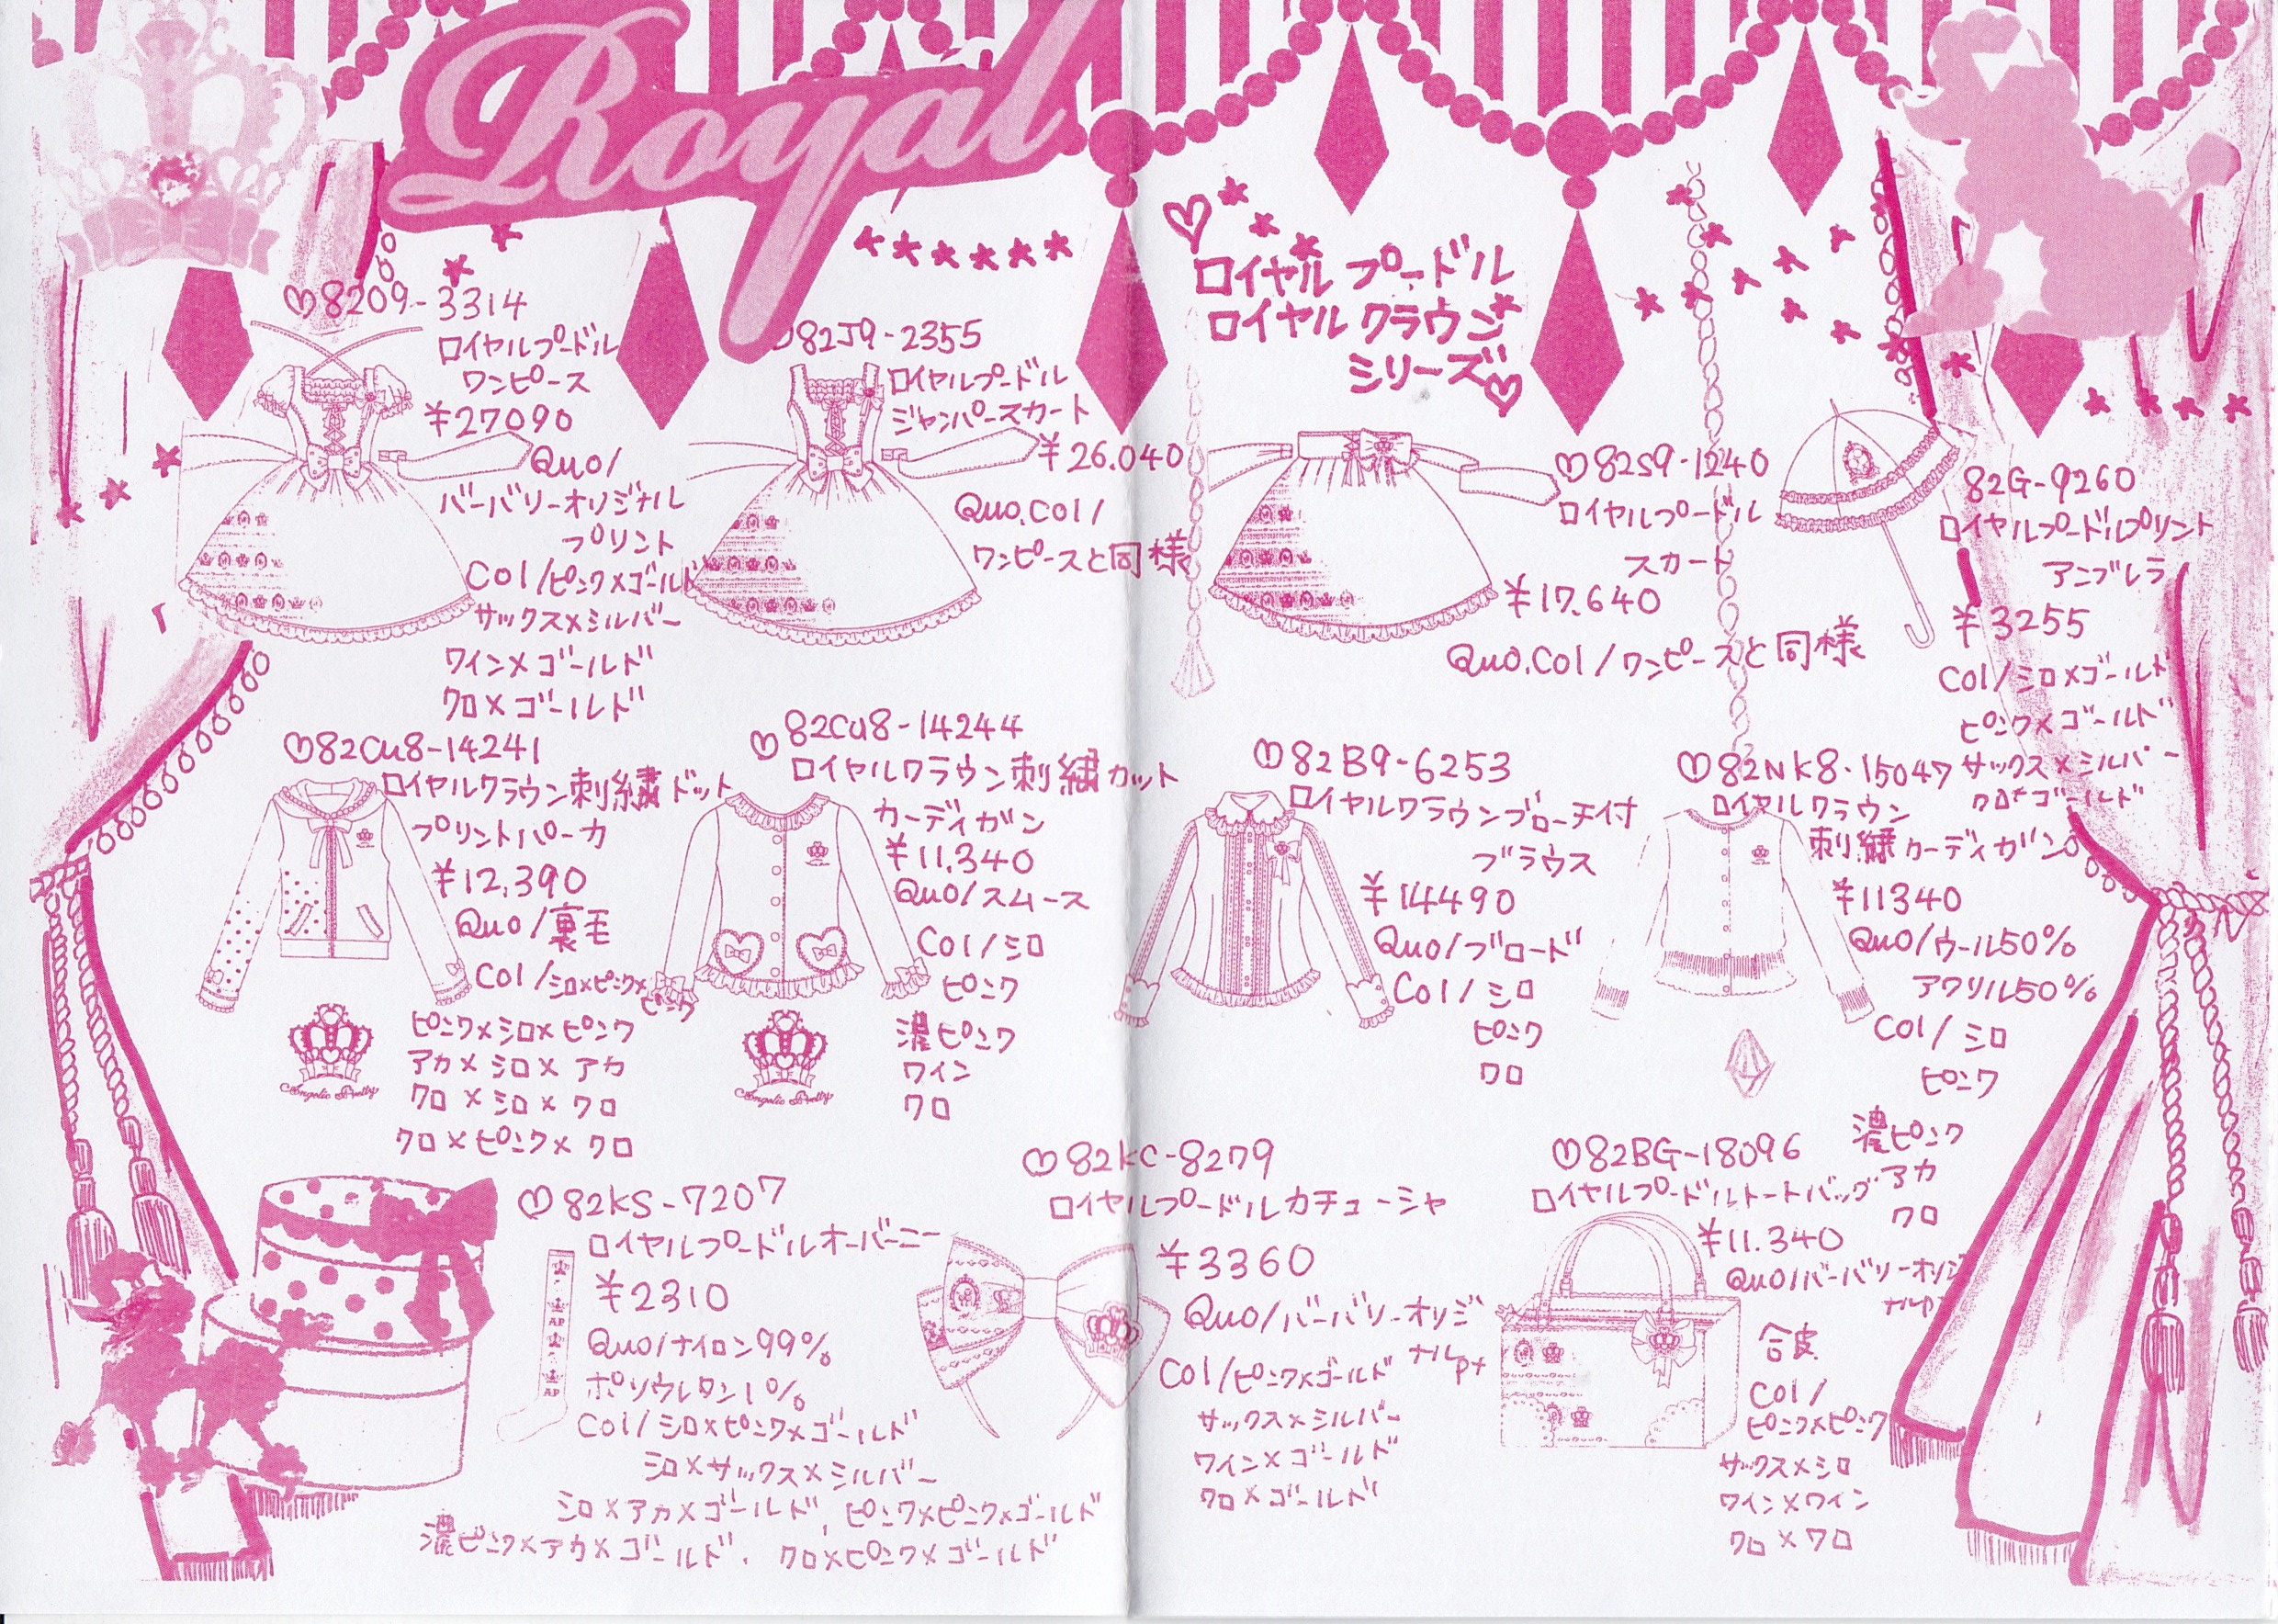 Royal
ロイヤルプードル
ロイヤルクラウン
シリーズ
8209-3314
ロイヤルプードル
ワンピース
¥27090
Quo/
バーバリーオリジナル
プリント
Col/ピンク×ゴールド
サックス×シルバー
ワイン×ゴールド
クロ×ゴールド
82J9-2355
ロイヤルプードル
ジャンパースカート
¥26.040
Quo.Col/
ワンピースと同様
82S9-1240
ロイヤルプードル
スカート
¥17.640
Quo.Col/ワンピースと同様
82G-9260
ロイヤルプードルプリント
アンブレラ
¥3255
Col/シロ×ゴールド
ピンク×ゴールド
サックス×シルバー
クロ×ゴールド
82Cu8-14241
ロイヤルクラウン刺繍ドット
プリントパーカ
¥12,390
Quo/裏毛
Col/シロ×ピンク×
ピンク
ピンク×シロ×ピンク
アカ×シロ×アカ
クロ×シロ×クロ
クロ×ピンク×クロ
Angelic Pretty
82Cu8-14244
ロイヤルクラウン刺繍カット
カーディガン
¥11.340
Quo/スムース
Col/シロ
ピンク
濃ピンク
ワイン
クロ
Angelic Pretty
82B9-6253
ロイヤルクラウンブローチ付
ブラウス
¥14490
Quo/ブロード
Col/シロ
ピンク
クロ
82NK8-15047
ロイヤルクラウン
刺繍カーディガン
¥11340
Quo/ウール50%
アクリル50%
Col/シロ
ピンク
濃ピンク
アカ
クロ
82KS-7207
ロイヤルプードルオーバーニー
¥2310
Quo/ナイロン99%
ポリウレタン1%
Col/シロ×ピンク×ゴールド
シロ×サックス×シルバー
シロ×アカ×ゴールド,ピンク×ピンク×ゴールド
濃ピンク×アカ×ゴールド.クロ×ピンク×ゴールド
AP
AP
82KC-8279
ロイヤルプードルカチューシャ
¥3360
Quo/バーバリーオリジ
ナルPt
Col/ピンク×ゴールド
サックス×シルバー
ワイン×ゴールド
クロ×ゴールド
82BG-18096
ロイヤルプードルトートバッグ
¥11.340
Quo/バーバリーオリジ
ナルP
合皮
Col/
ピンク×ピンク
サックス×シロ
ワイン×ワイン
クロ×クロ